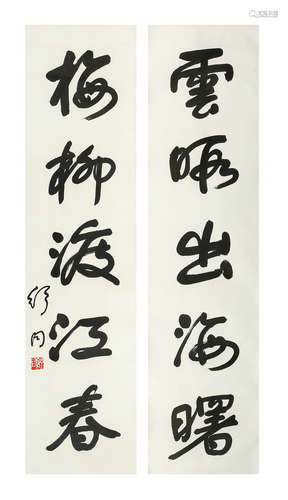 雲出海曙
梅柳渡江春
舒同